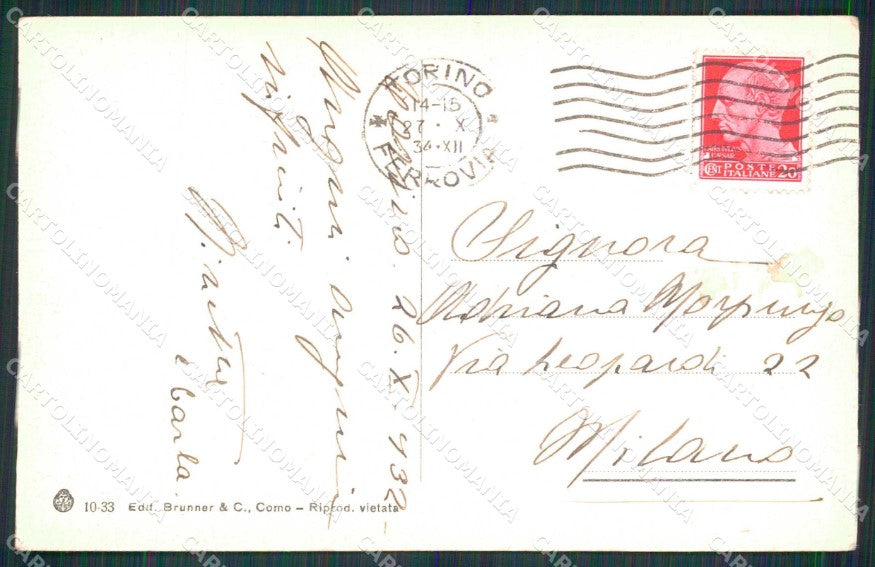 26.X.932
Auguri auguri
vissimi.
Carla
TORINO
14-15
27 · X
34·XII
FERROVIA
IVLIVS
CAESAR
POSTE
ITALIANE 20
Signora
Adriana Morpurgo
Via Leopardi 22
Milano
10-33 Edit. Brunner & C., Como – Riprod. vietata
CARTOLINOMANIA